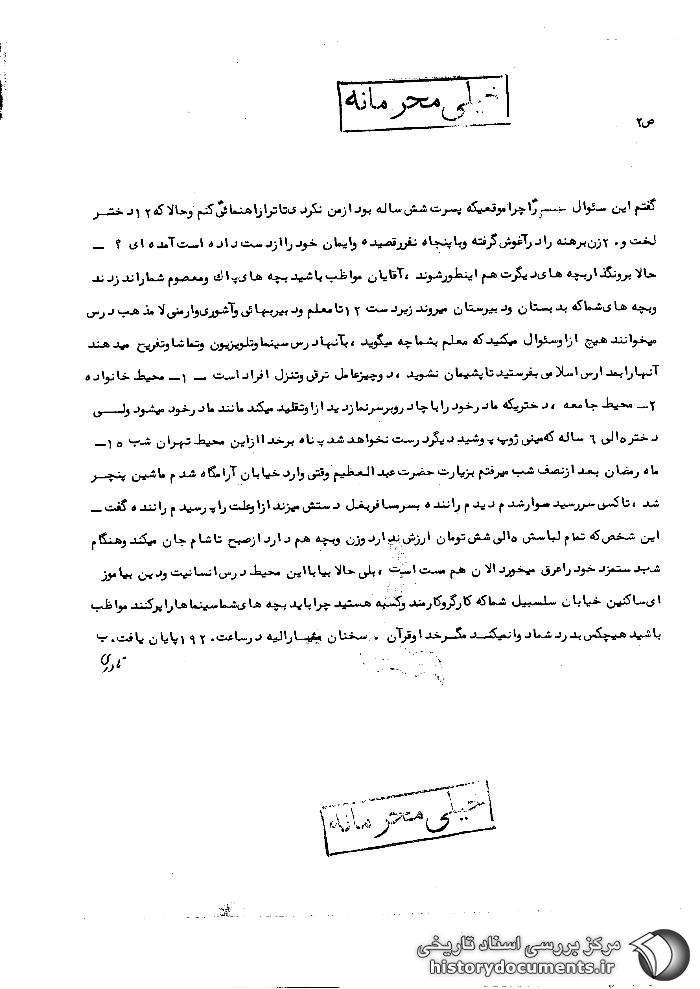 خیلی محرمانه
ص۲
گفتم این سئوال را چرا موقعیکه پسرت شش ساله بود از من نکردی تا ترا راهنمائی کنم و حالا که ۱۲ دختر
لخت و ۲۰ زن برهنه را در آغوش گرفته و با پنجاه نفر رقصیده و ایمان خود را از دست داده است آمده ای ؟ ـ
حالا برو نگذار بچه های دیگرت هم اینطور شوند ، آقایان مواظب باشید بچه های پاك و معصوم شما را ندزدند
و بچه های شما که بدبستان و دبیرستان میروند زیر دست ۱۲ تا معلم و دبیر بهائی و آشوری و ارمنی لامذهب درس
میخوانند هیچ از او سئوال میکنید که معلم بشما چه میگوید ، بآنها درس سینما و تلویزیون و تماشا و تفریح میدهند
آنها را بمدارس اسلامی بفرستید تا پشیمان نشوید ، دو چیز عامل ترقی و تنزل افراد است ـ ۱ـ محیط خانواده
۲ـ محیط جامعه ، دختریکه مادر خود را با چادر و بر سر نماز دید از او تقلید میکند مانند مادر خود میشود ولی
دختر ۵ الی ۶ ساله که مینی ژوپ پوشید دیگر درست نخواهد شد پناه بر خدا از این محیط تهران شب ۱۵ـ
ماه رمضان بعد از نصف شب میرفتم بزیارت حضرت عبدالعظیم وقتی وارد خیابان آرامگاه شدم ماشین پنچر
شد ، تاکسی سر رسید سوار شدم دیدم راننده بسر مسافر بغل دستش میزند از او علت را پرسیدم راننده گفت ـ
این شخص که تمام لباسش ۵ الی شش تومان ارزش ندارد و زن و بچه هم دارد از صبح تا شام جان میکند و هنگام
شب دستمزد خود را عرق میخورد الان هم مست است ، بلی حالا بیا با این محیط درس انسانیت و دین بیاموز
ای ساکنین خیابان سلسبیل شما که کارگر و کارمند و کسبه هستید چرا باید بچه های شما سینماها را پر کنند مواظب
باشید هیچکس بدرد شما دوا نمیکند مگر خدا و قرآن . سخنان مشارالیه در ساعت ۱۹۲۰ پایان یافت. ب
نادری
خیلی محرمانه
مرکز بررسی اسناد تاریخی
historydocuments.ir